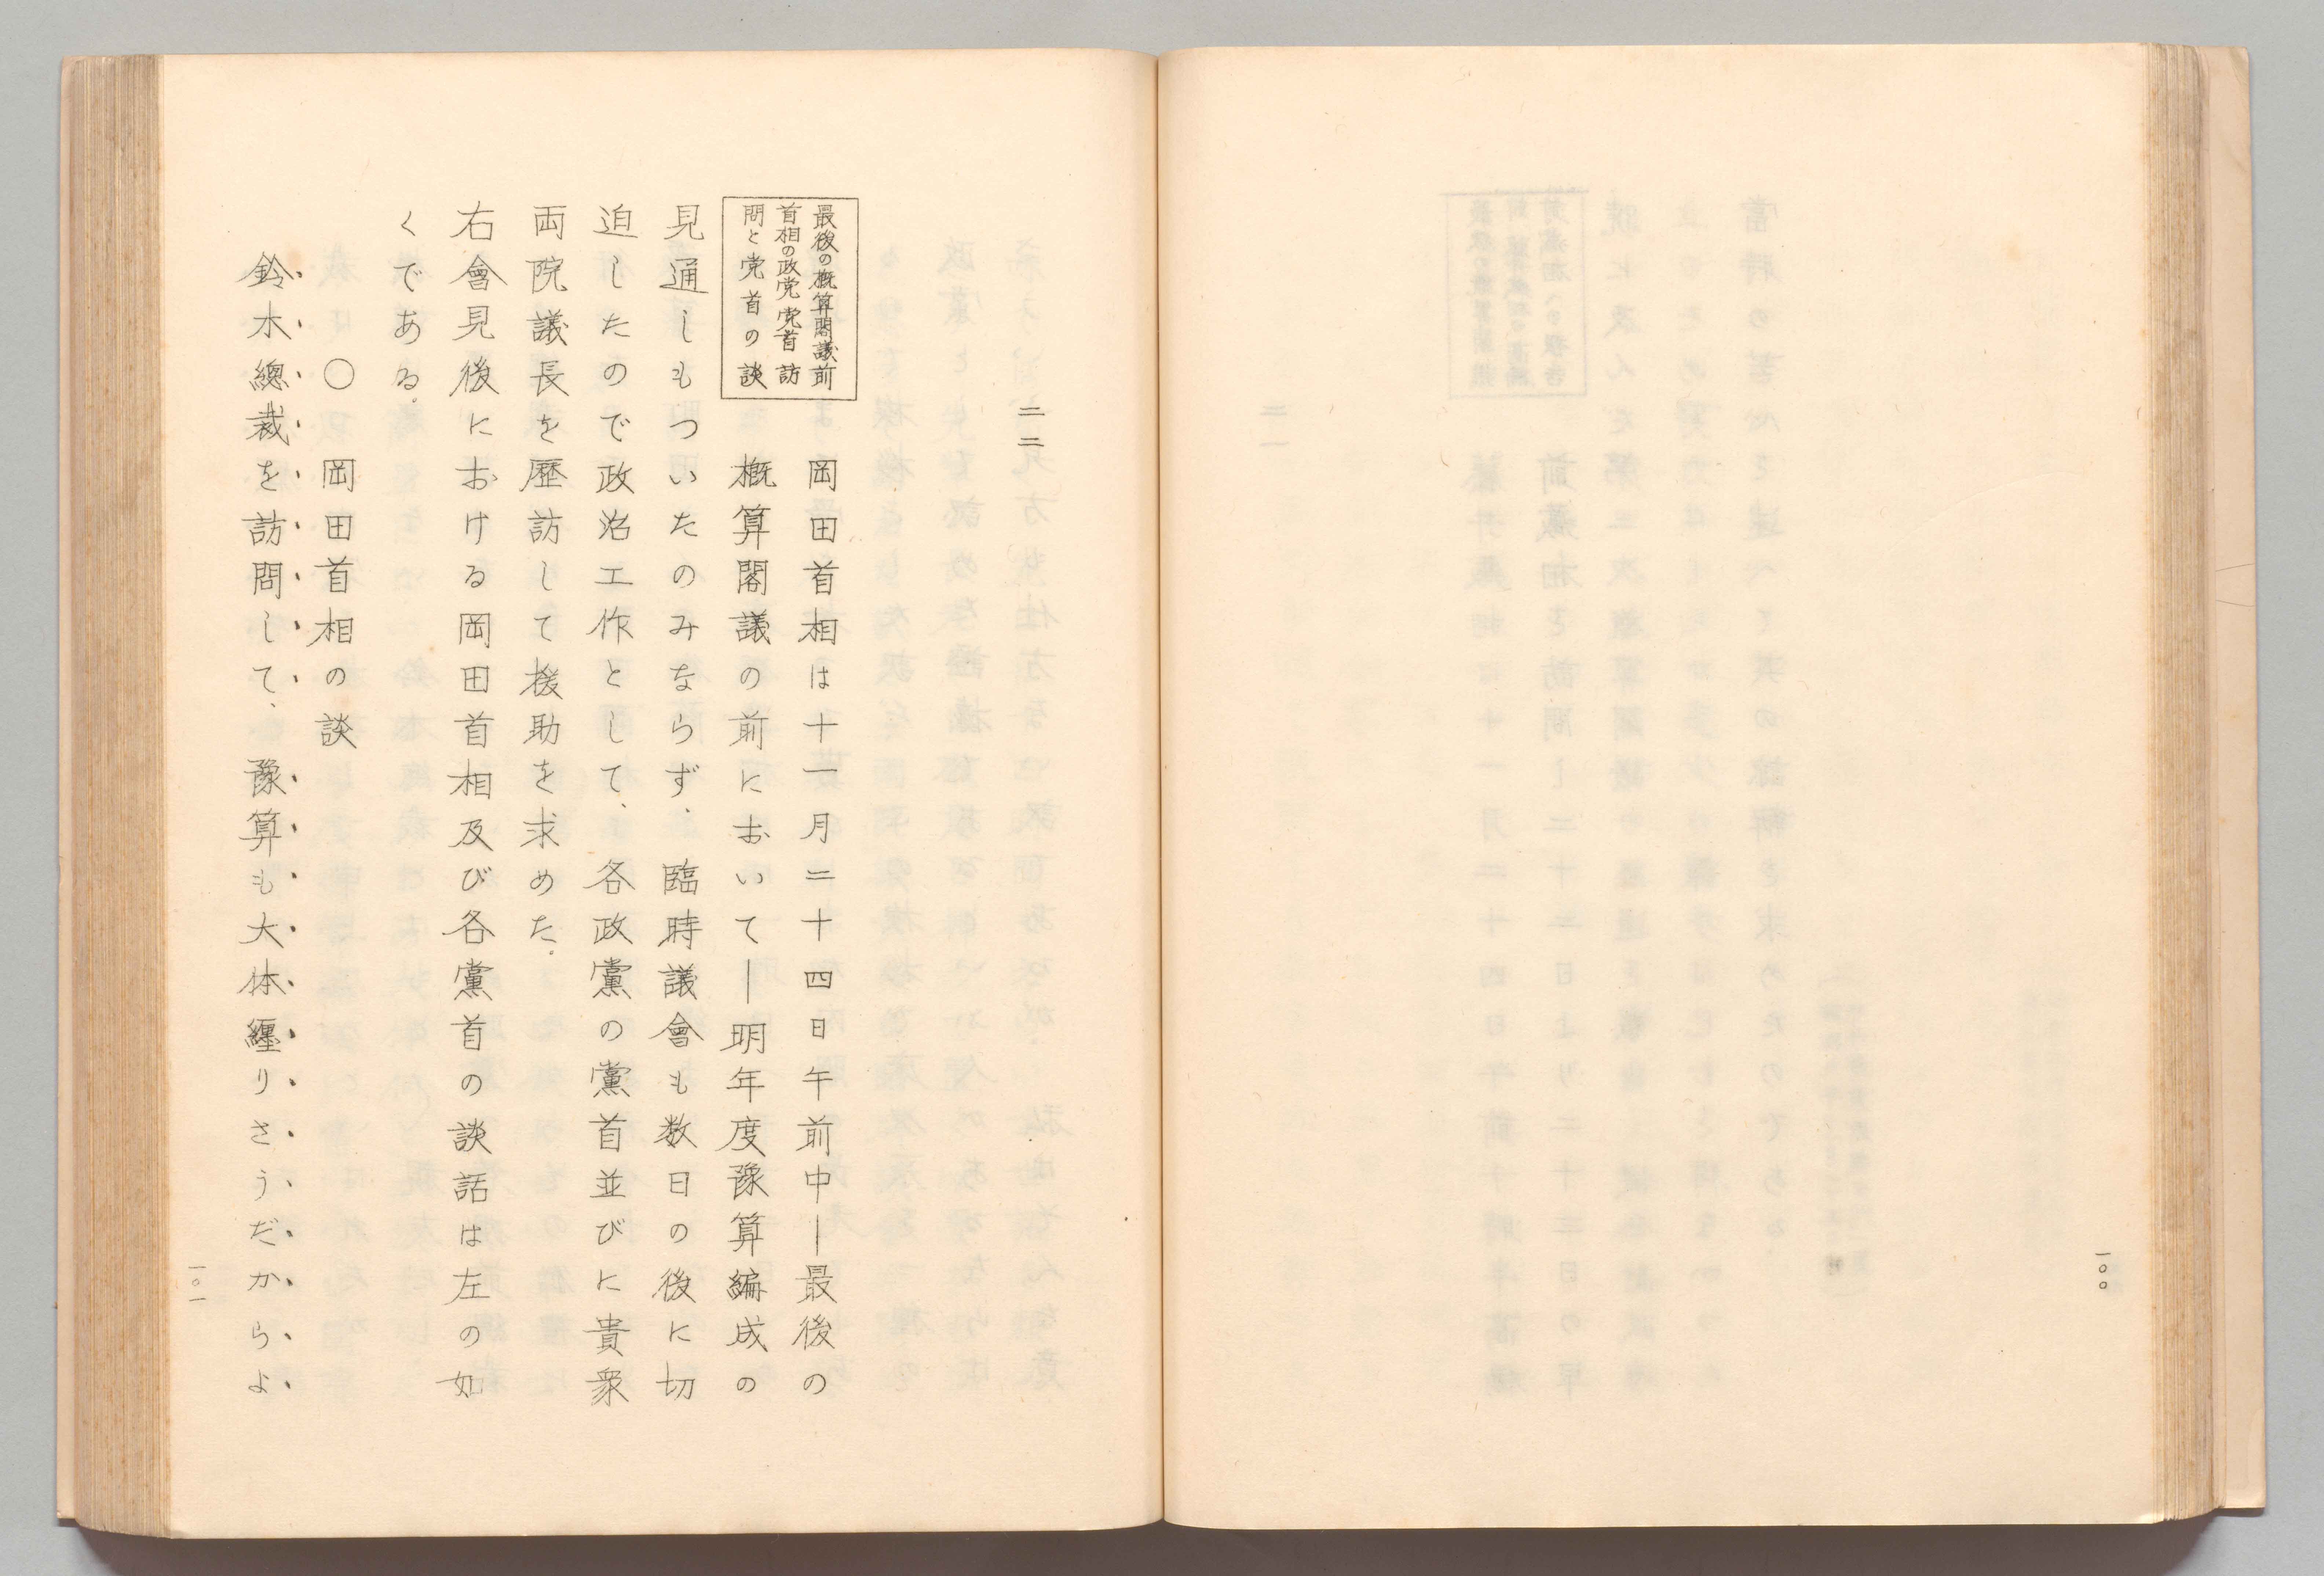 一〇〇
二二
最後の概算閣議前
首相の政党党首訪
問と党首の談
岡田首相は十一月二十四日午前中―最後の
概算閣議の前において―明年度豫算編成の
見通しもついたのみならず、臨時議會も数日の後に切
迫したので政治工作として、各政黨の黨首並びに貴衆
両院議長を歴訪して援助を求めた。
右會見後における岡田首相及び各黨首の談話は左の如
くである。
〇岡田首相の談
鈴木總裁を訪問して、豫算も大体纒りさうだからよ
一〇一